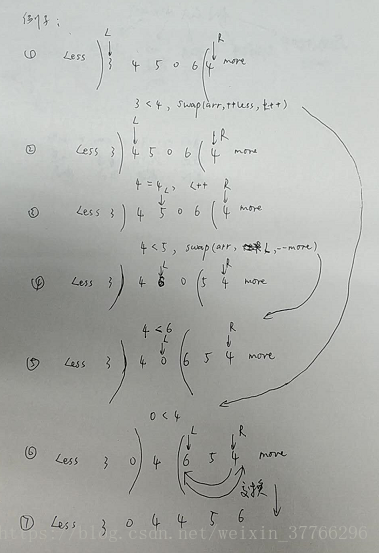 例子:
L R
① Less ) 3 4 5 0 6 ( 4 more
3 < 4, swap(arr, ++less, L++)
L R
② Less 3 ) 4 5 0 6 ( 4 more
4 = 4, L++
L R
③ Less 3 ) 4 5 0 6 ( 4 more
4 < 5, swap(arr, L, --more)
L R
④ Less 3 ) 4 6 0 ( 5 4 more
4 < 6
L R
⑤ Less 3 ) 4 0 ( 6 5 4 more
0 < 4
L R
⑥ Less 3 0 ) 4 ( 6 5 4 more
交换
⑦ Less 3 0 4 4 5 6
https://blog.csdn.net/weixin_37766296